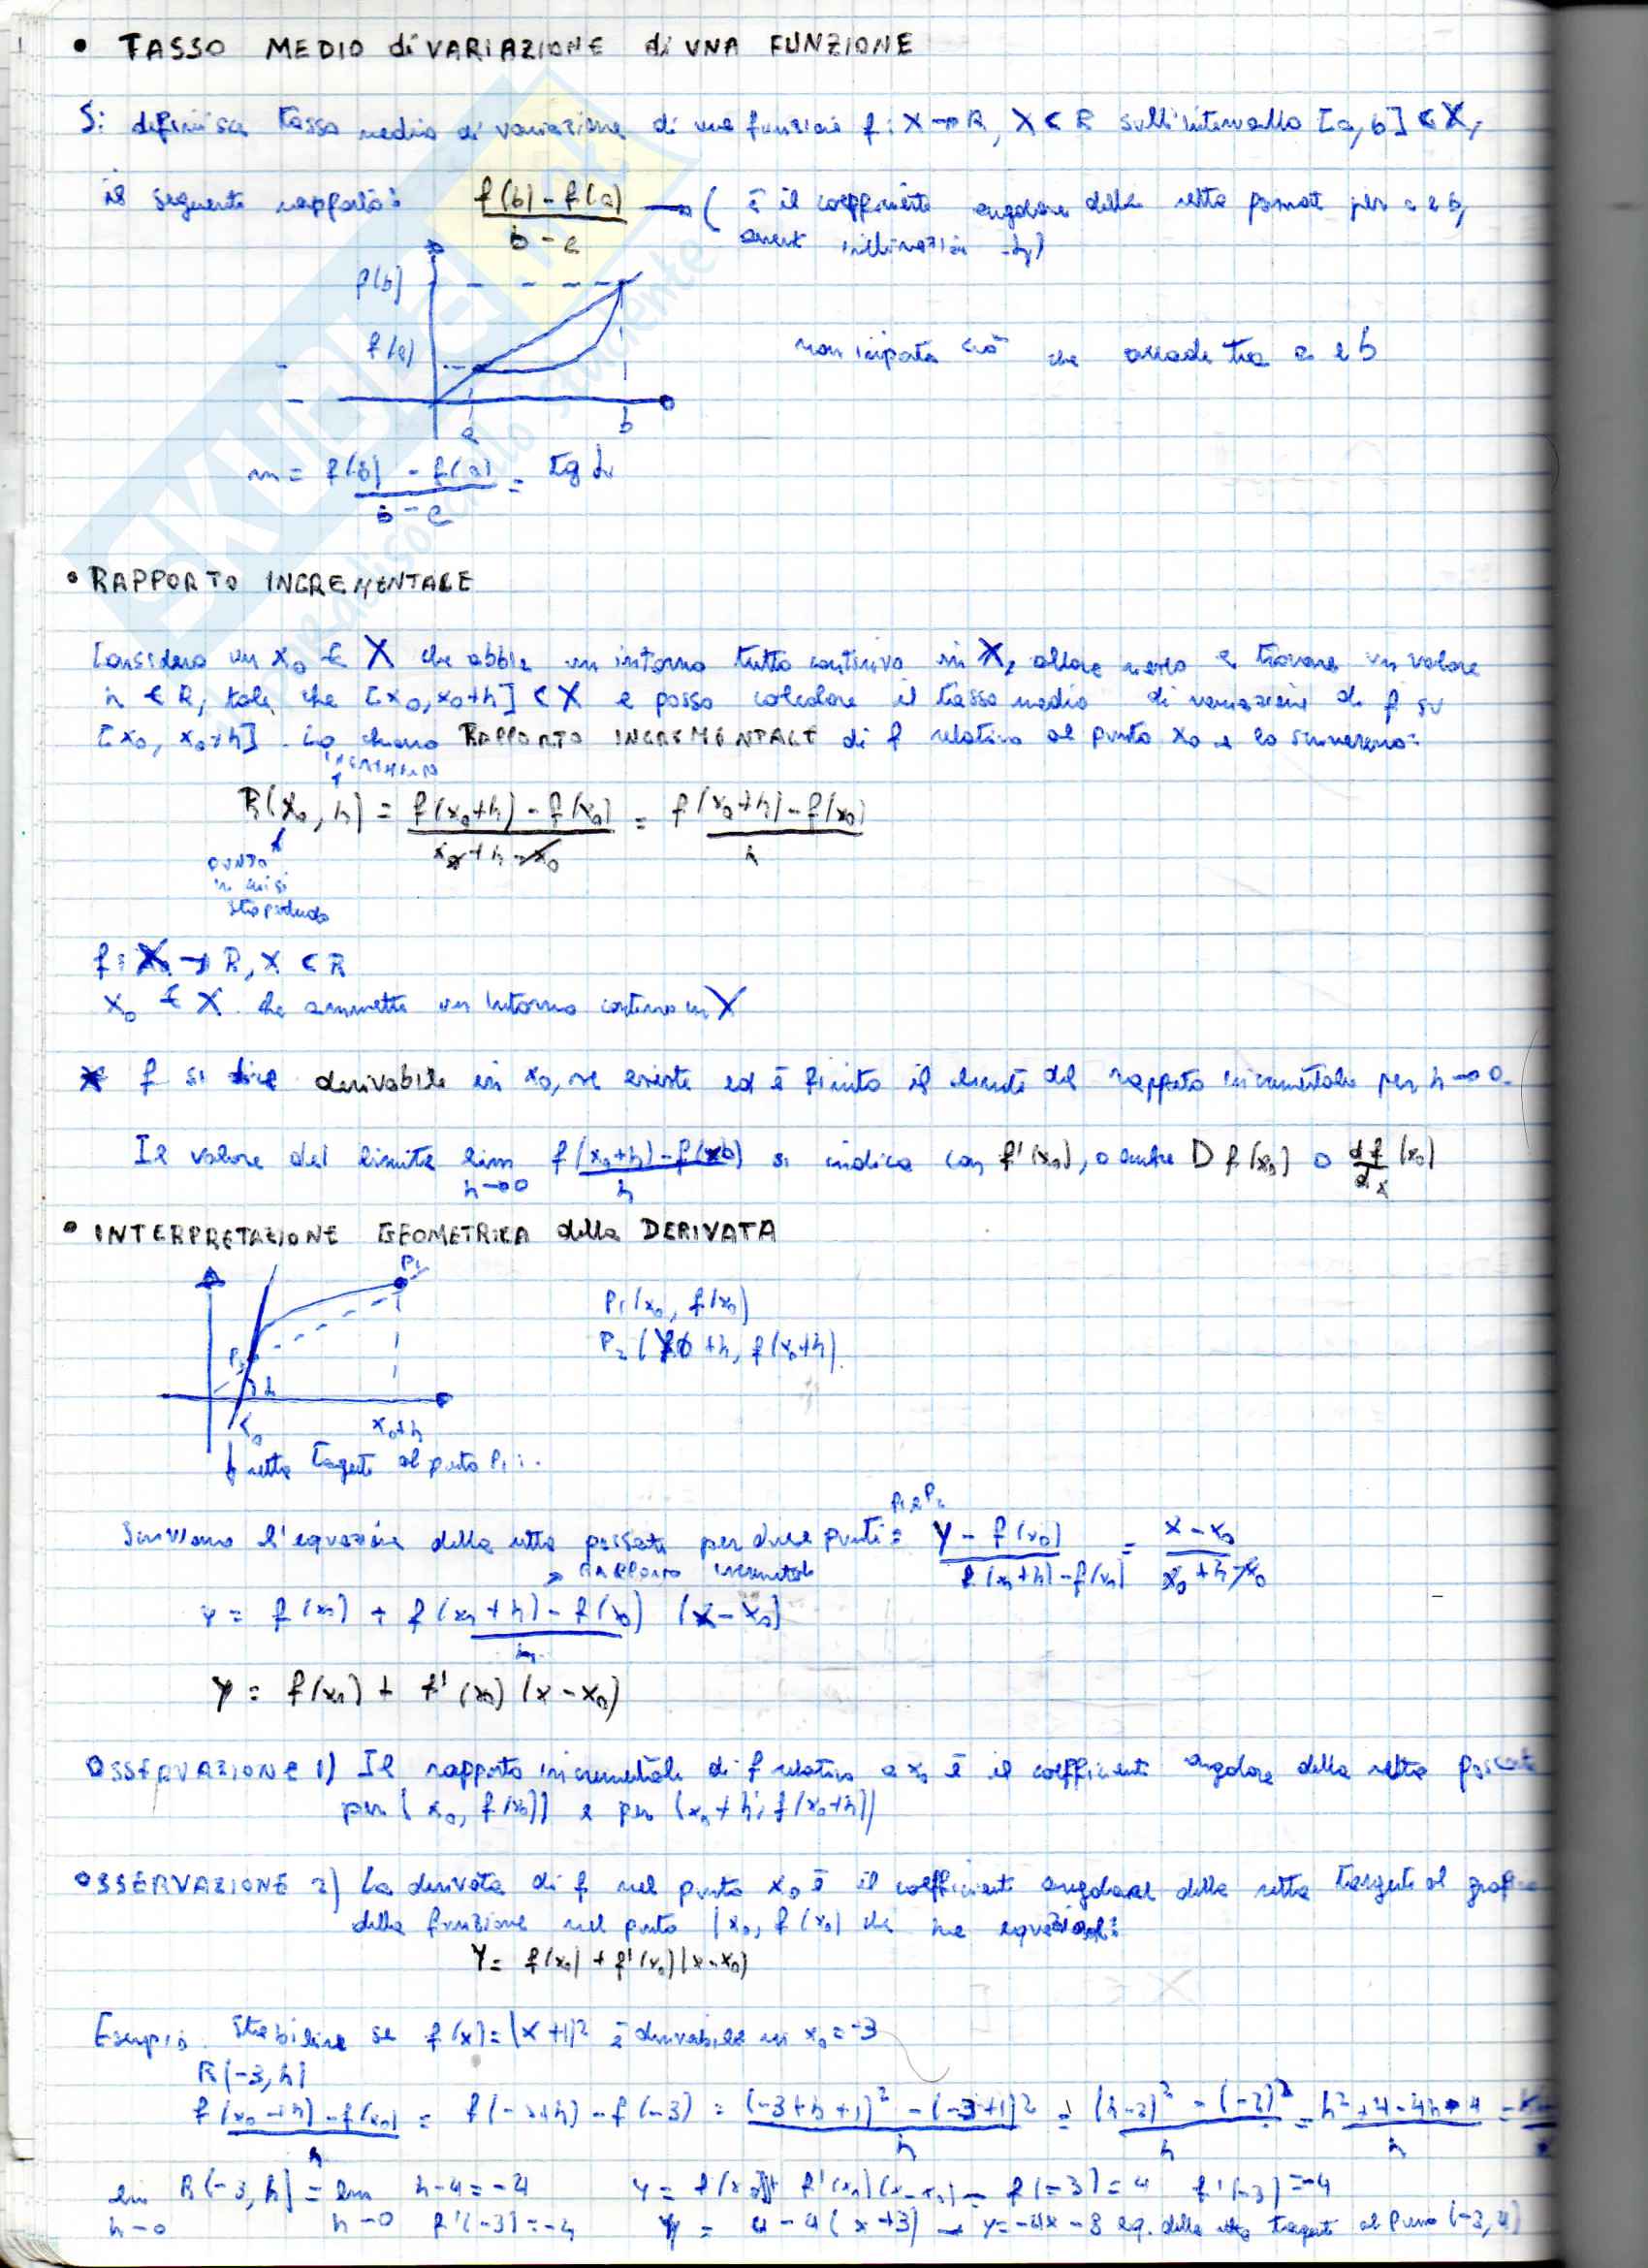 • TASSO MEDIO di VARIAZIONE di UNA FUNZIONE
Si definisce tasso medio di variazione di una funzione f: X → R, X ⊂ R sull'intervallo [a, b] ⊂ X,
il seguente rapporto: f(b) - f(a) / b - a → ( è il coefficiente angolare della retta passante per a e b,
avente inclinazione α)
f(b)
f(a)
a b
non importa ciò che accade tra a e b
m = f(b) - f(a) / b - a = tg α
• RAPPORTO INCREMENTALE
Considero un x0 ∈ X che abbia un intorno tutto contenuto in X, allora riesco a trovare un valore
h ∈ R, tale che [x0, x0+h] ⊂ X e posso calcolare il tasso medio di variazione di f su
[x0, x0+h]. Lo chiamo RAPPORTO INCREMENTALE di f relativo al punto x0 e lo scriveremo:
incremento
R(x0, h) = f(x0+h) - f(x0) / x0 + h - x0 = f(x0+h) - f(x0) / h
punto
in cui si
sta
f: X → R, X ⊂ R
x0 ∈ X che ammette un intorno contenuto in X
* f si dice derivabile in x0, se esiste ed è finito il limite del rapporto incrementale per h → 0.
Il valore del limite lim h→0 f(x0+h) - f(x0) / h si indica con f'(x0), o anche D f(x0) o df/dx (x0)
• INTERPRETAZIONE GEOMETRICA della DERIVATA
P2
P1
α
x0 x0+h
P1 (x0, f(x0))
P2 (x0 + h, f(x0+h)
retta tangente al punto P1
P1 e P2
Scriviamo l'equazione della retta passante per due punti: Y - f(x0) / f(x0+h) - f(x0) = x - x0 / x0 + h - x0
→ rapporto incrementale
Y = f(x0) + f(x0+h) - f(x0) / h (x - x0)
Y = f(x0) + f'(x0) (x - x0)
OSSERVAZIONE 1) Il rapporto incrementale di f relativo a x0 è il coefficiente angolare della retta passante
per (x0, f(x0)) e per (x0 + h, f(x0+h))
OSSERVAZIONE 2) La derivata di f nel punto x0 è il coefficiente angolare della retta tangente al grafico
della funzione nel punto (x0, f(x0) che ha equazione:
Y = f(x0) + f'(x0)(x - x0)
Esempio. Stabilire se f(x) = (x+1)² è derivabile in x0 = -3
R(-3, h)
f(x0+h) - f(x0) / h = f(-3+h) - f(-3) = (-3+h+1)² - (-3+1)² / h = (h-2)² - (-2)² / h = h² + 4 - 4h - 4 / h =
lim h→0 R(-3, h) = lim h→0 h - 4 = -4 Y = f(x0) + f'(x0)(x - x0) → f(-3) = 4 f'(-3) = -4
f'(-3) = -4 Y = 4 - 4(x+3) → Y = -4x - 8 eq. della retta tangente al punto (-3, 4)
SKUOLA.net